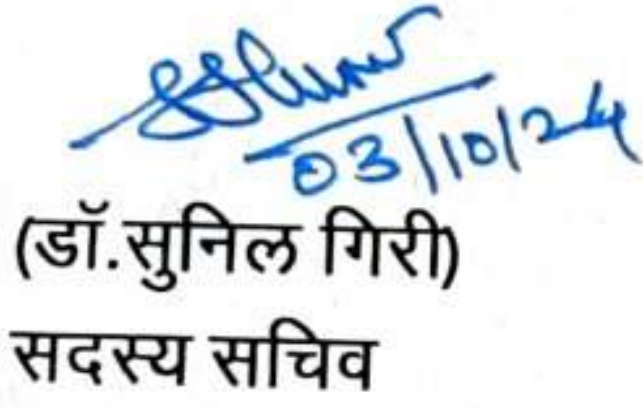 03/10/24
(डॉ.सुनिल गिरी)
सदस्य सचिव